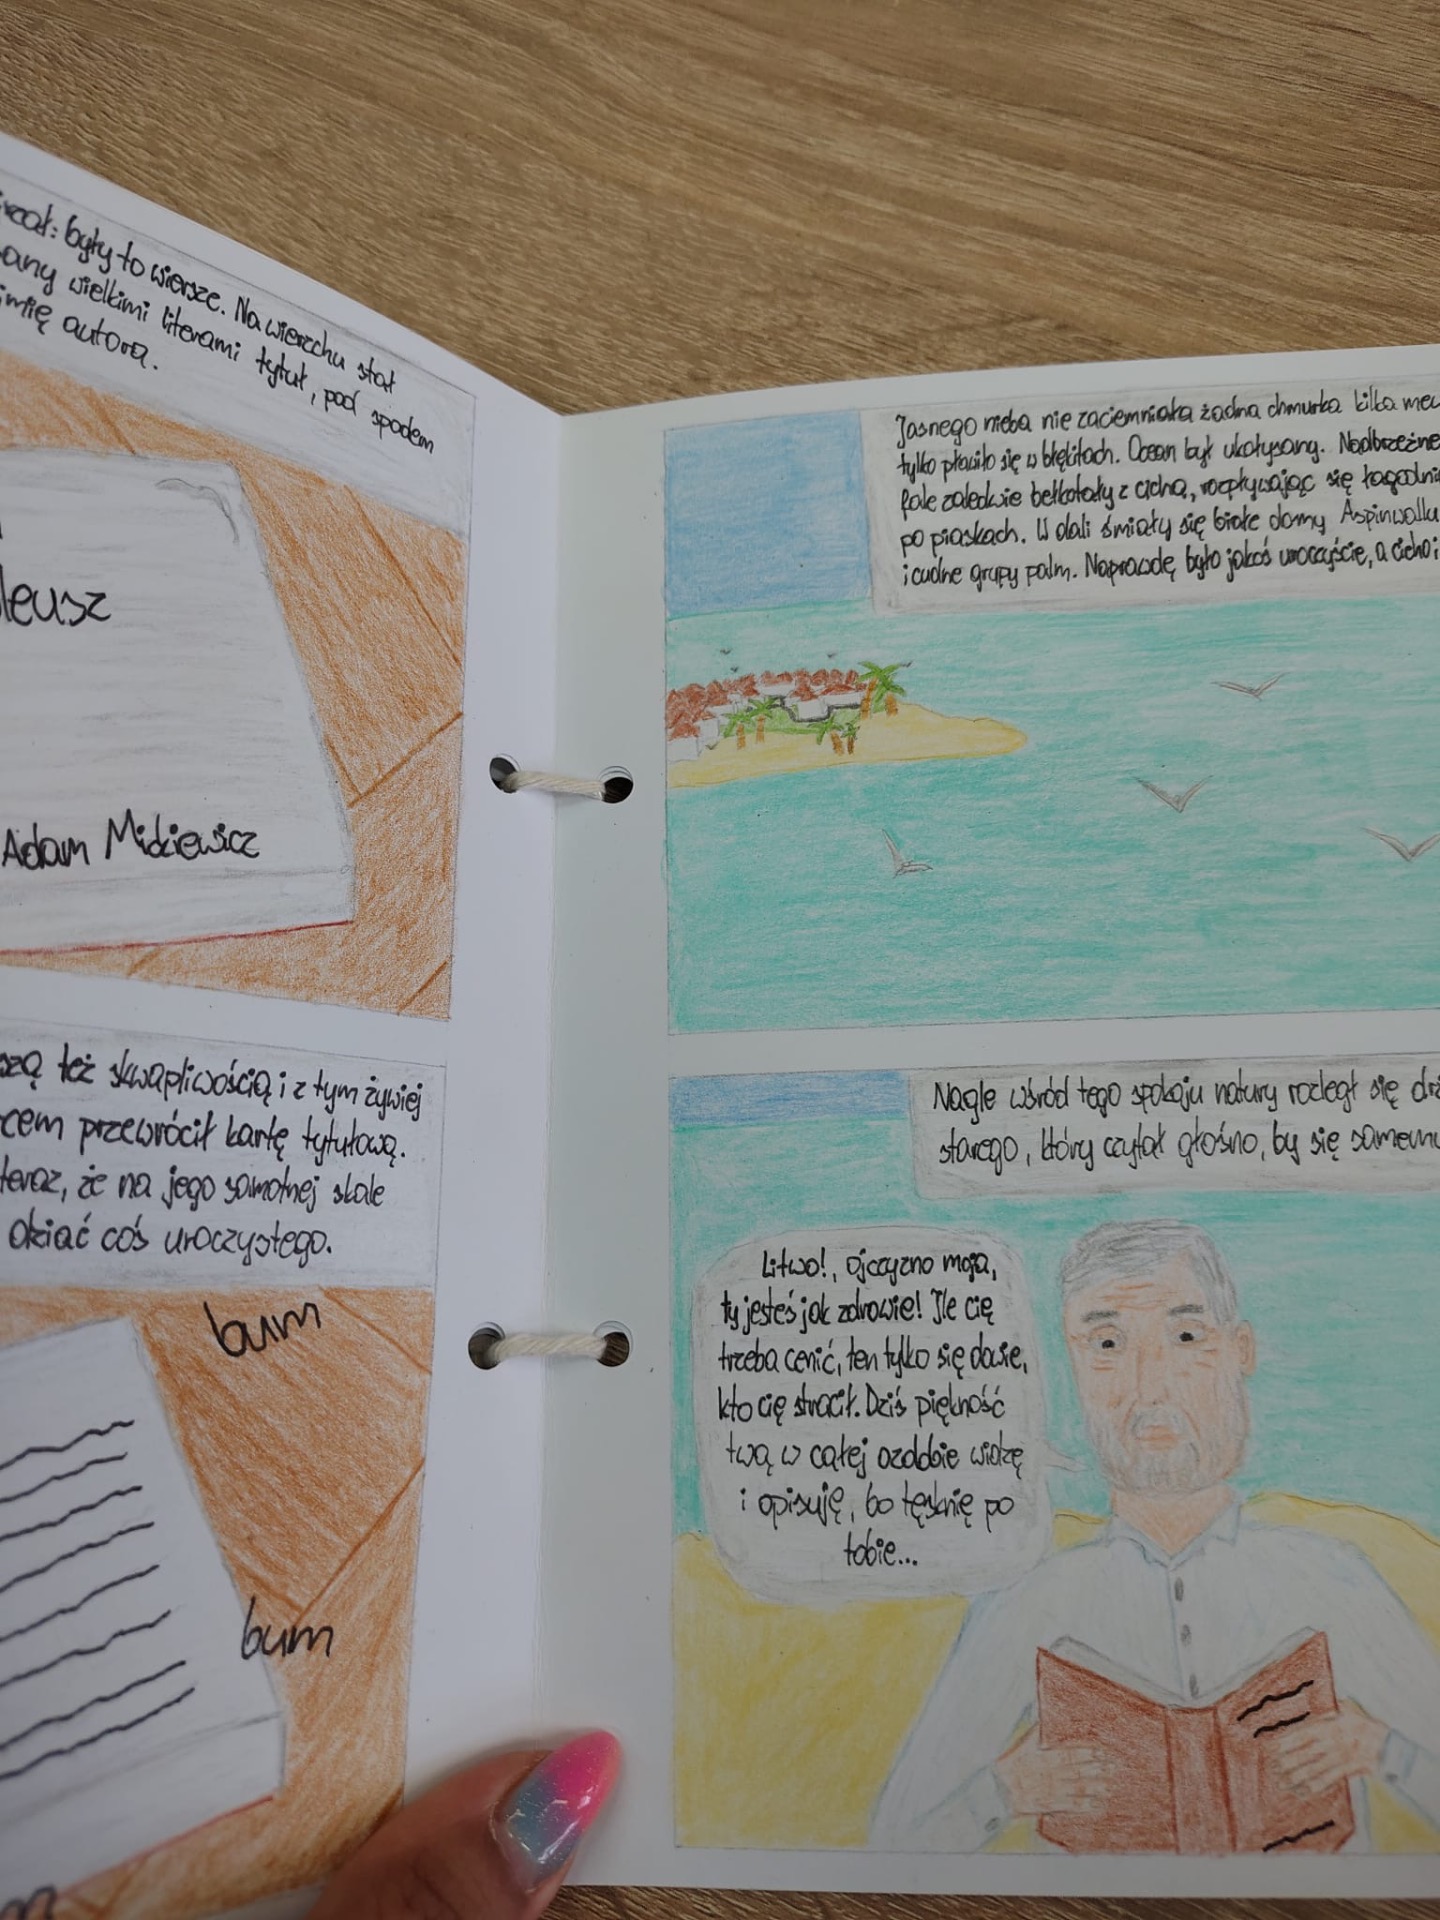 były to wiersze. Na wierzchu stał
wielkimi literami tytuł, pod spodem
imię autora.
Adam Mickiewicz
też skwapliwością i z tym żywiej
przewrócił kartę tytułową.
teraz, że na jego samotnej skale
dziać coś uroczystego.
bum
bum
Jasnego nieba nie zaciemniała żadna chmurka kilka
tylko pławiło się w błękitach. Ocean był ukołysany. Nadbrzeżne
fale zaledwie bełkotały z cicha, rozpływając się
po piaskach. W dali śmiały się białe domy Aspinwallu
i cudne grupy palm. Naprawdę było jakoś uroczyście, a cicho i
Nagle wśród tego spokoju natury rozległ się
starego, który czytał głośno, by się
Litwo!, ojczyzno moja,
ty jesteś jak zdrowie! Ile cię
trzeba cenić, ten tylko się dowie,
kto cię stracił. Dziś piękność
twą w całej ozdobie widzę
i opisuję, bo tęsknię po
tobie...